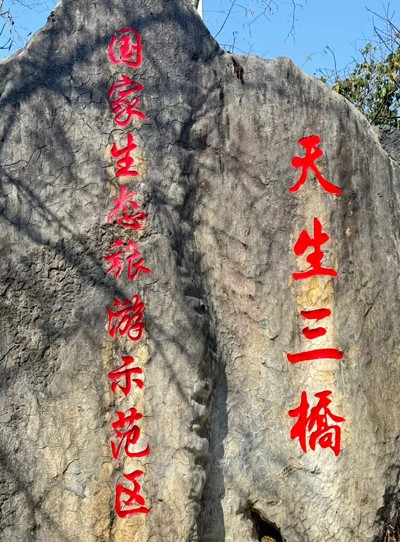 天生三橋
国家生态旅游示范区